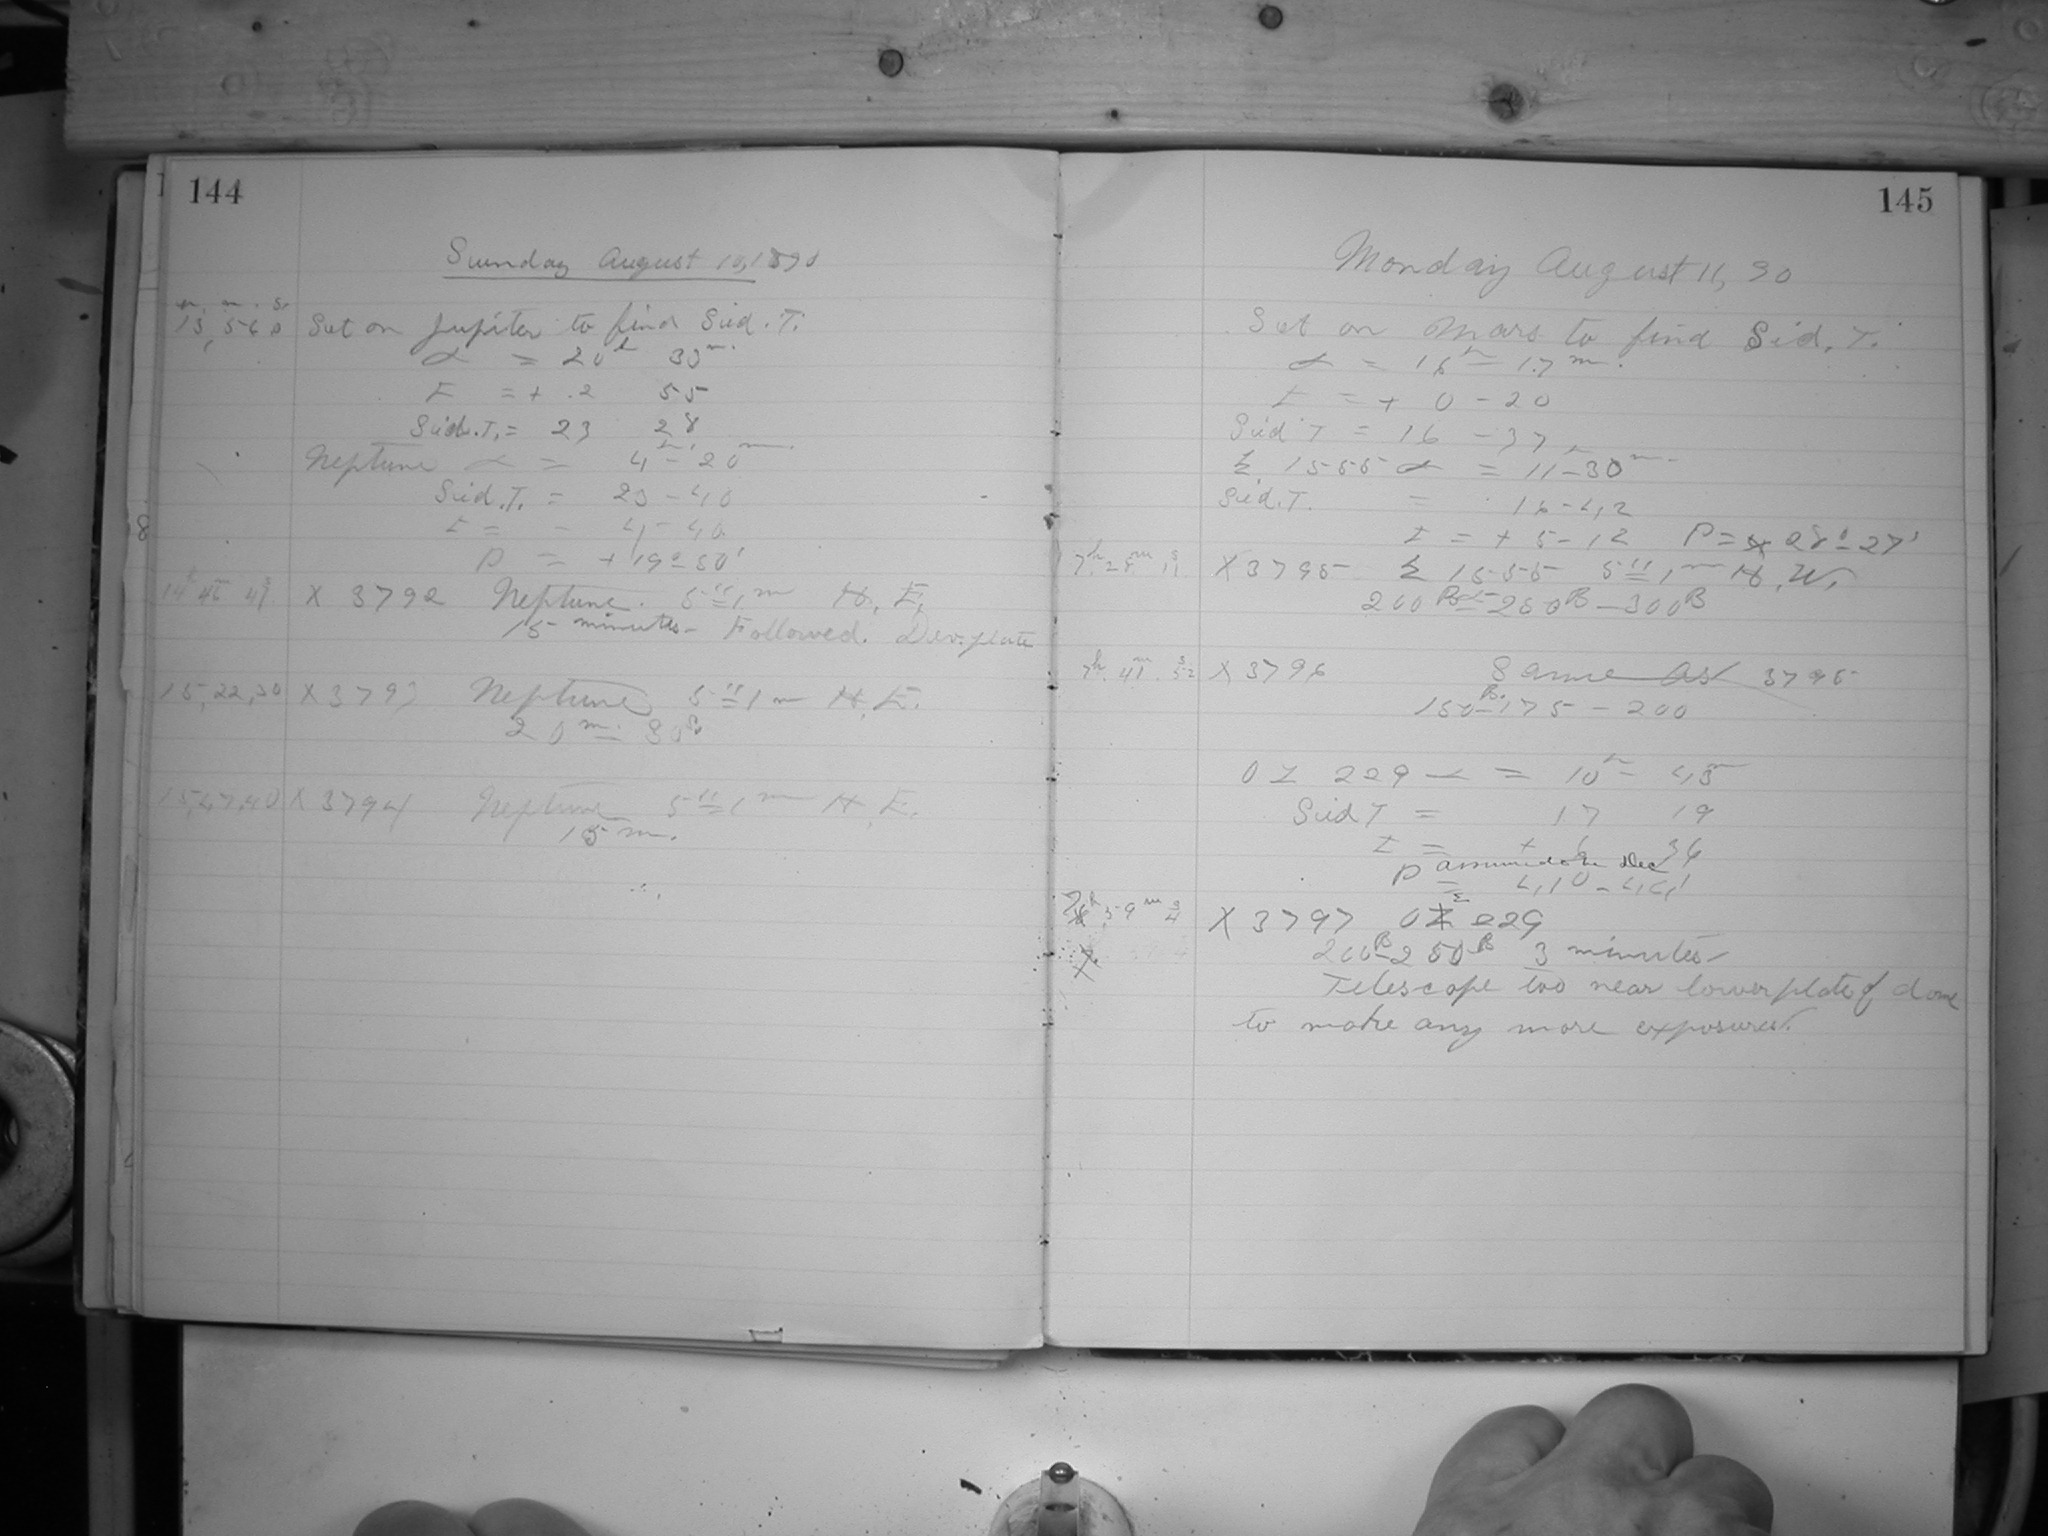 144
Sunday August 10, 1890
h. m. s.
13, 56 0 Set on Jupiter to find Sid. T.
α = 20h 33m.
t = + 2 55
Sid. T. = 23 28
Neptune α = 4h - 20m.
Sid. T. = 23 - 40
t = - 4 - 40
D = + 19° 50'
14h 46m 49s X 3792 Neptune. 5" = 1m H. E.
15 minutes - Followed. Dev. plate
15, 22, 30 X 3793 Neptune 5" = 1m H. E.
20m. 30s
15, 47, 40 X 3794 Neptune 5" = 1m H. E.
15 m.
145
Monday August 11, 90
Set on Mars to find Sid. T.
α = 16h - 17m.
t = + 0 - 20
Sid T = 16 - 37
Σ 1555 α = 11h - 30m.
Sid. T. = 16 - 42
t = + 5 - 12 D = + 28° - 27'
X 3795 Σ 1555 5" = 1m H. W.
200B - 250B - 300B
7h. 41m. 52s X 3796 Same as 3795
150B. - 175 - 200
OΣ 229 α = 10h - 43
Sid T = 17 19
t = + 6 36
D assumed Dec
= 41° - 41'
7h. 59m X 3797 OΣ 229
200B - 250B 3 minutes -
Telescope too near lower plate of dome
to make any more exposures.